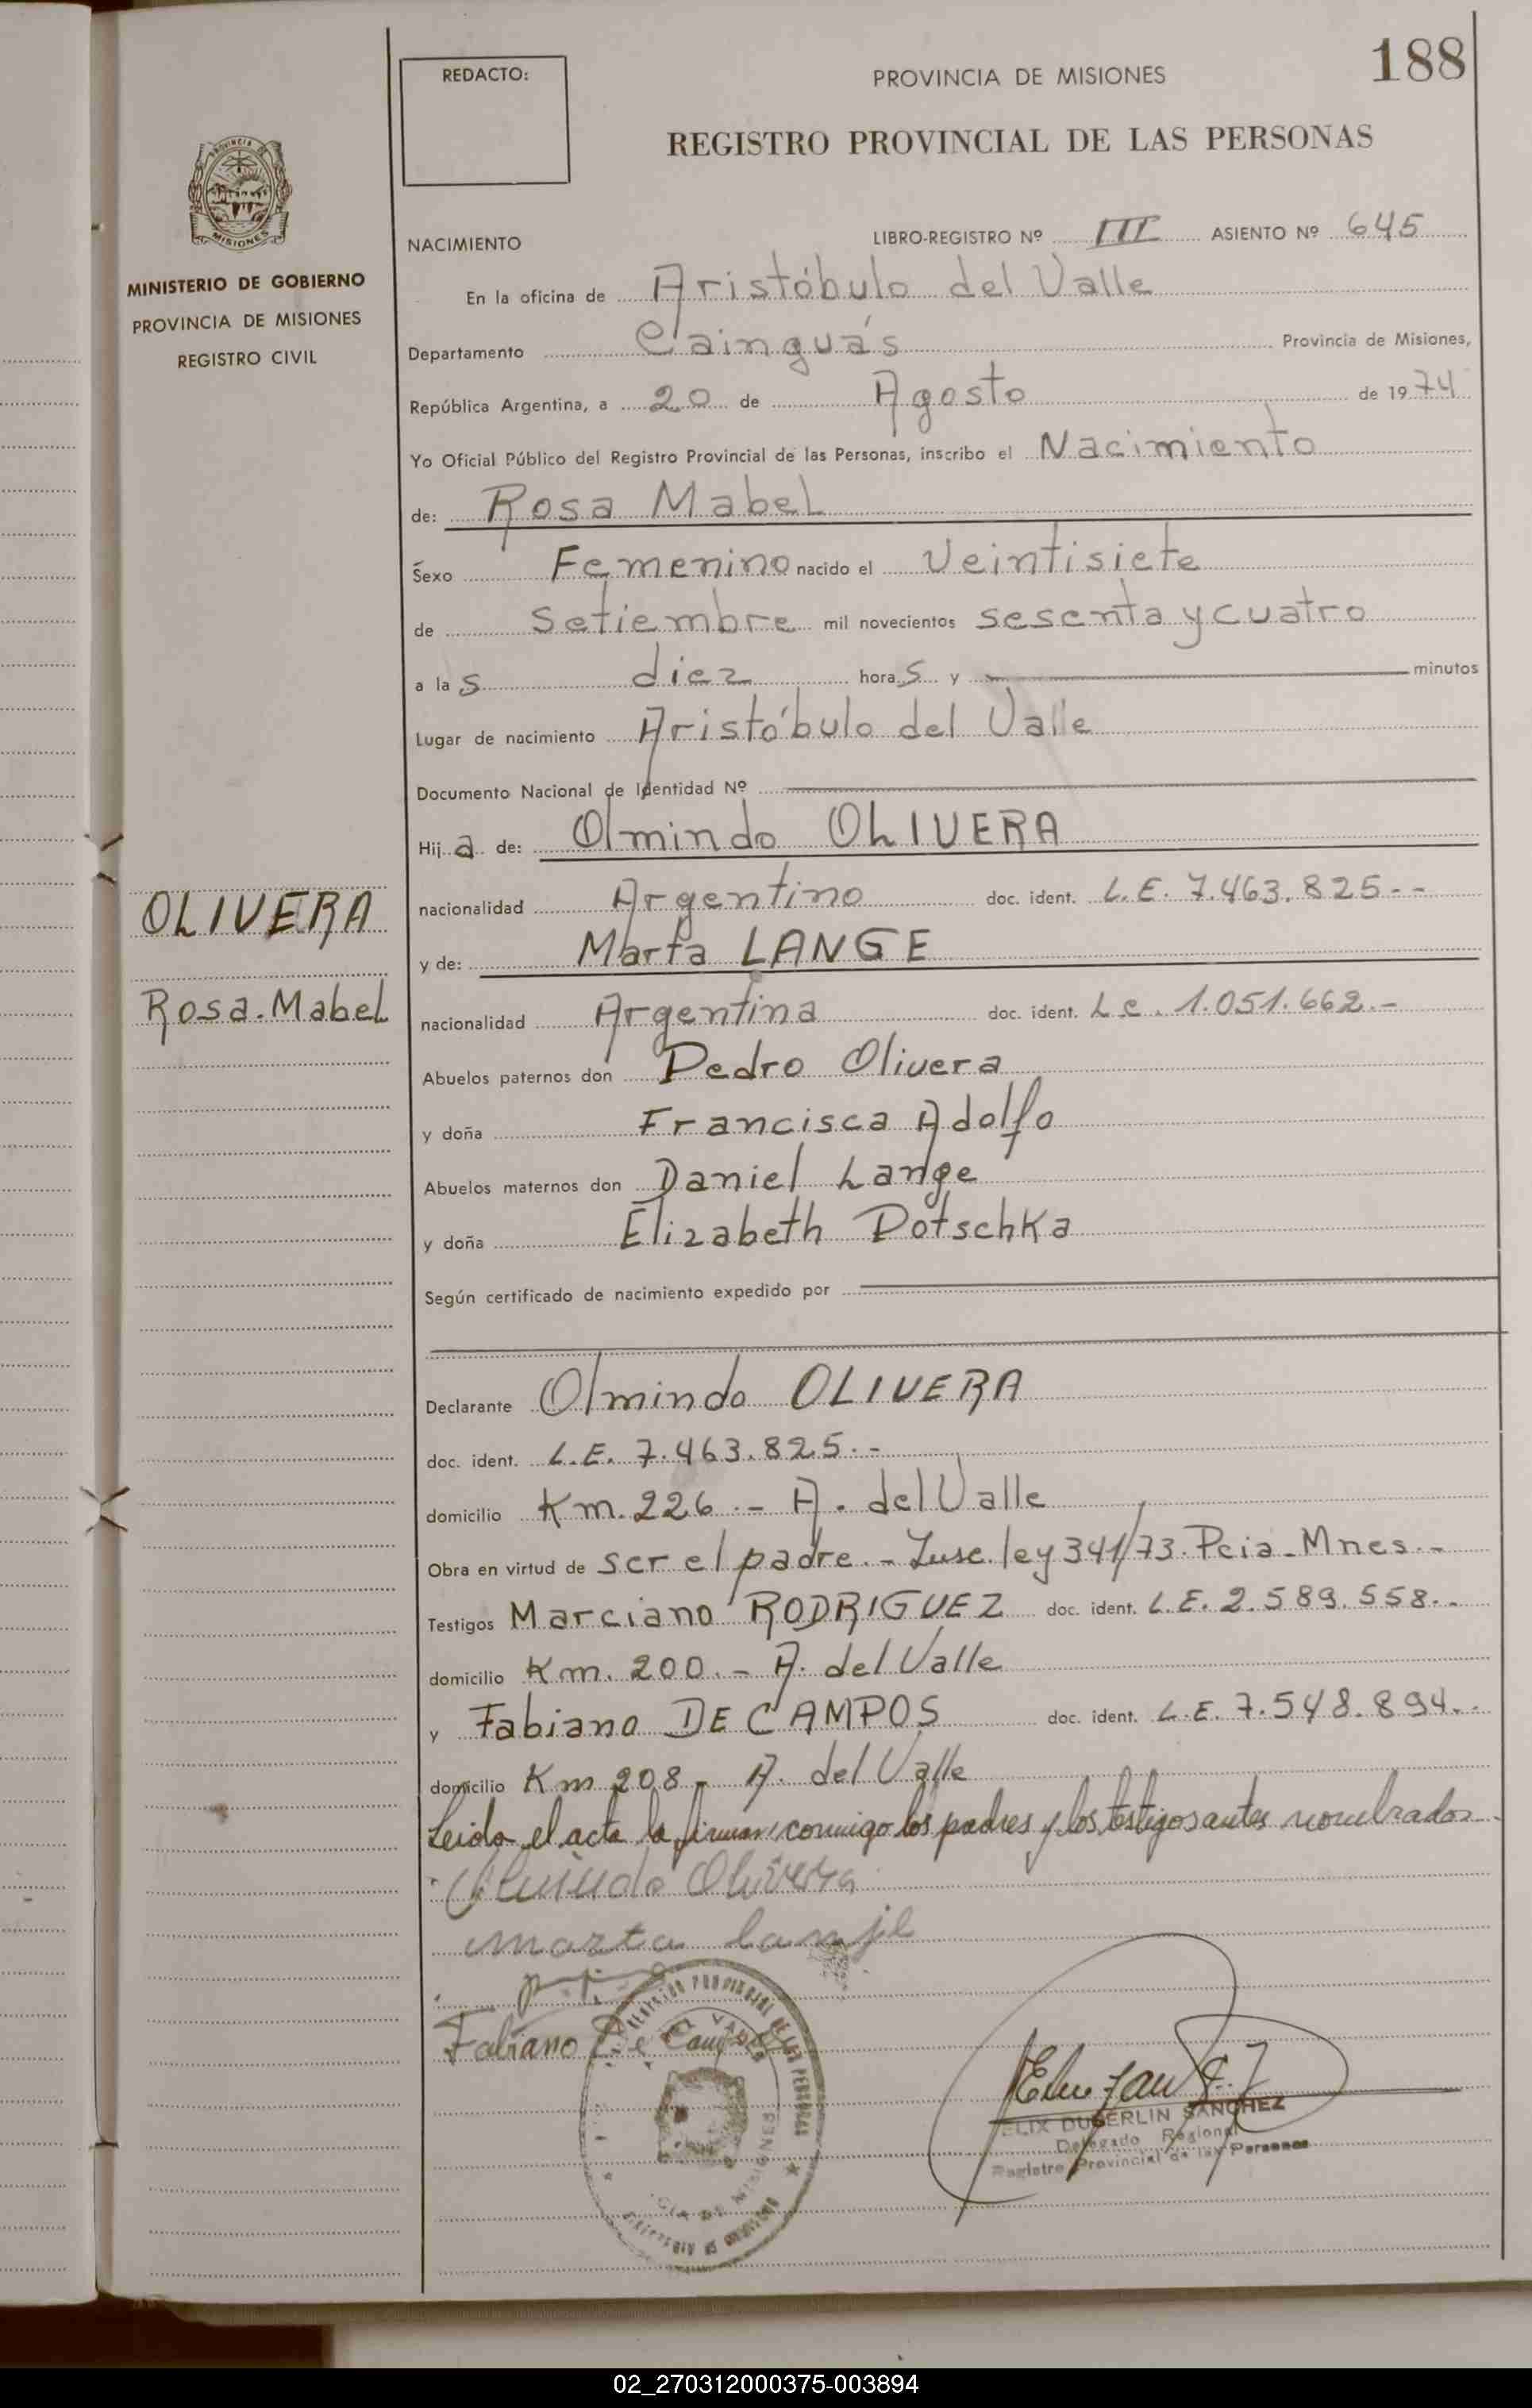 188
REDACTO:
PROVINCIA DE MISIONES
REGISTRO PROVINCIAL DE LAS PERSONAS
PROVINCIA DE
MISIONES
MINISTERIO DE GOBIERNO
PROVINCIA DE MISIONES
REGISTRO CIVIL
NACIMIENTO
LIBRO-REGISTRO Nº III ASIENTO Nº 645
En la oficina de Aristóbulo del Valle
Departamento Cainguás Provincia de Misiones,
República Argentina, a 20 de Agosto de 1974
Yo Oficial Público del Registro Provincial de las Personas, inscribo el Nacimiento
de: Rosa Mabel
Sexo Femenino nacido el Veintisiete
de Setiembre mil novecientos sesenta y cuatro
a las diez horas y minutos
Lugar de nacimiento Aristóbulo del Valle
Documento Nacional de Identidad Nº
Hija de: Olmindo OLIVERA
OLIVERA
nacionalidad Argentino doc. ident. L.E. 7.463.825.--
y de: Marta LANGE
Rosa.Mabel
nacionalidad Argentina doc. ident. L c. 1.051.662.-
Abuelos paternos don Pedro Olivera
y doña Francisca Adolfo
Abuelos maternos don Daniel Lange
y doña Elizabeth Potschka
Según certificado de nacimiento expedido por
Declarante Olmindo OLIVERA
doc. ident. L.E. 7.463.825.-
domicilio Km. 226.- A. del Valle
Obra en virtud de ser el padre.- ley 341/73. Pcia. Mnes.-
Testigos Marciano RODRIGUEZ doc. ident. L.E. 2.589.558.-
domicilio Km. 200.- A. del Valle
y Fabiano DE CAMPOS doc. ident. L.E. 7.548.894.-
domicilio Km 208 - A. del Valle
Leida el acta la firman conmigo los padres y los testigos antes nombrados
Olmindo Olivera
marta lanje
Fabiano De Campos
DUBERLIN SANCHEZ
Delegado Regional
Registro Provincial de las Personas
02_270312000375-003894